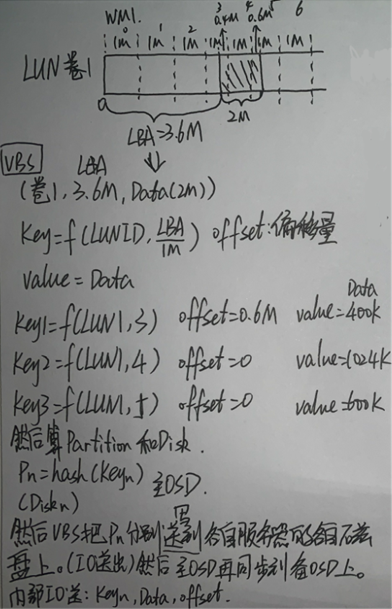 WM1.
3 4 5 6
0.4M 0.6M
1 2
1M 1M 1M 1M 1M 1M
LUN卷1
0
LBA=3.6M
2M
VBS
LBA
(卷1, 3.6M, Data(2M))
Key=f(LUNID, LBA/1M) offset:偏移量
value=Data
Data
Key1=f(LUN1,3) offset=0.6M value=400K
Key2=f(LUN1,4) offset=0 value=1024K
Key3=f(LUN1,5) offset=0 value=600K
然后算Partition和Disk.
Pn=hash(Keyn) 主OSD.
(Diskn)
然后VBS把Pn分别送到各自服务器的各自磁
盘上。(IO送出)然后主OSD再同步到备OSD上。
内部IO送: Keyn, Data, offset.